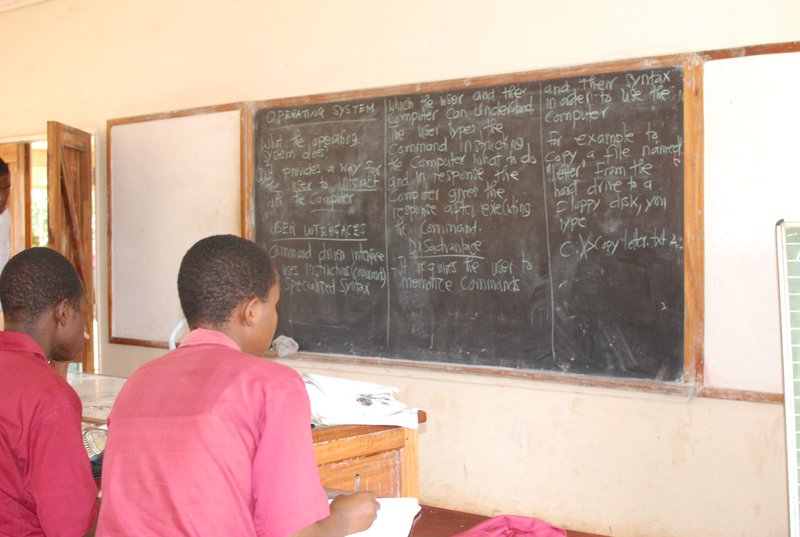 OPERATING SYSTEM
What the operating
System does?
It provides a way for
the user to Interact
with the Computer
USER INTERFACES
Command driven interface
uses Instructions (command)
Specialized Syntax
Which the user and the
Computer can understand
The user types the
Command, instructing
the Computer What to do
and in response the
Computer gives the
response after executing
the Command.
Disadvantage
It requires the user to
memorize Commands
and their syntax
in order to use the
Computer
For example to
Copy a file named
"letter" from the
hard drive to a
Floppy disk, you
type
C:\>Copy letter.txt A: